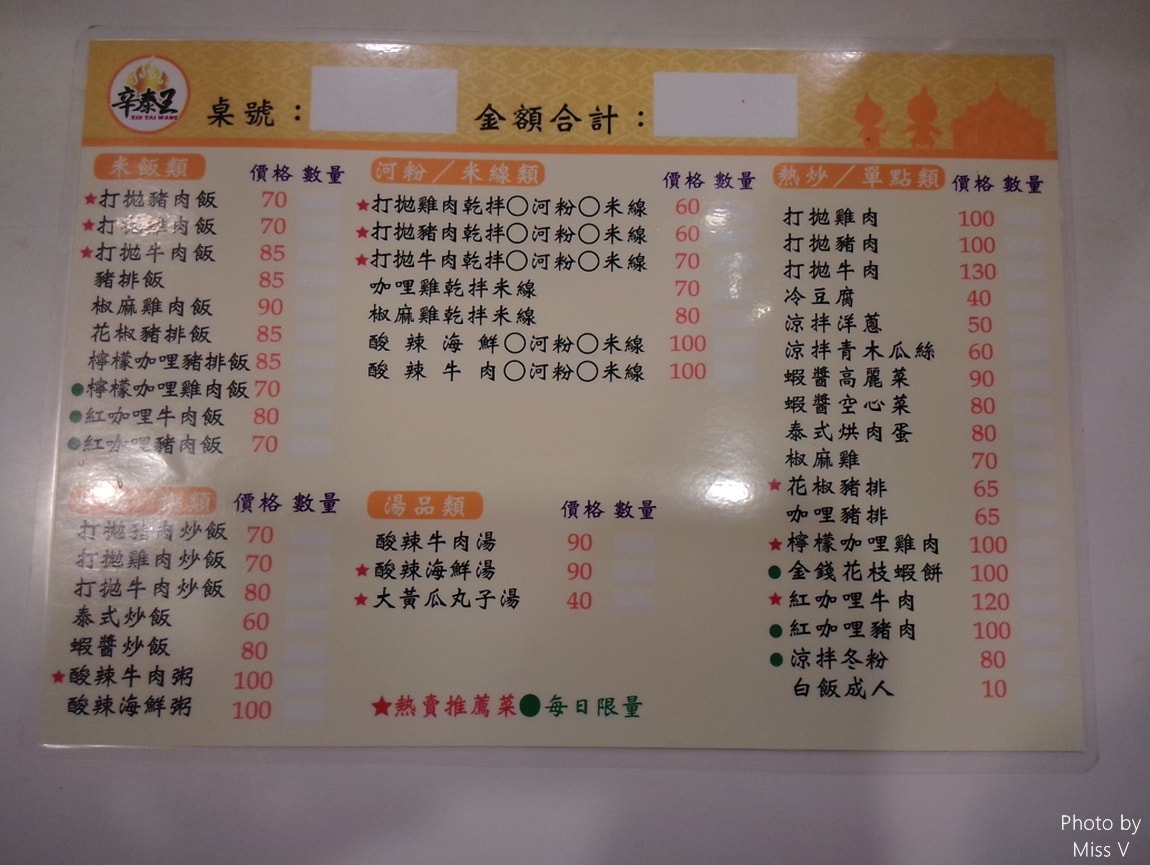 辛泰王
XIN TAI WANG
桌號：
金額合計：
米飯類 價格 數量
★打拋豬肉飯 70
★打拋雞肉飯 70
★打拋牛肉飯 85
豬排飯 85
椒麻雞肉飯 90
花椒豬排飯 85
檸檬咖哩豬排飯 85
●檸檬咖哩雞肉飯 70
●紅咖哩牛肉飯 80
●紅咖哩豬肉飯 70
類 價格 數量
打拋豬肉炒飯 70
打拋雞肉炒飯 70
打拋牛肉炒飯 80
泰式炒飯 60
蝦醬炒飯 80
★酸辣牛肉粥 100
酸辣海鮮粥 100
河粉／米線類 價格 數量
★打拋雞肉乾拌○河粉○米線 60
★打拋豬肉乾拌○河粉○米線 60
★打拋牛肉乾拌○河粉○米線 70
咖哩雞乾拌米線 70
椒麻雞乾拌米線 80
酸辣海鮮○河粉○米線 100
酸辣牛肉○河粉○米線 100
湯品類 價格 數量
酸辣牛肉湯 90
★酸辣海鮮湯 90
★大黃瓜丸子湯 40
★熱賣推薦菜●每日限量
熱炒／單點類 價格 數量
打拋雞肉 100
打拋豬肉 100
打拋牛肉 130
冷豆腐 40
涼拌洋蔥 50
涼拌青木瓜絲 60
蝦醬高麗菜 90
蝦醬空心菜 80
泰式烘肉蛋 80
椒麻雞 70
★花椒豬排 65
咖哩豬排 65
★檸檬咖哩雞肉 100
●金錢花枝蝦餅 100
★紅咖哩牛肉 120
●紅咖哩豬肉 100
●涼拌冬粉 80
白飯成人 10
Photo by
Miss V